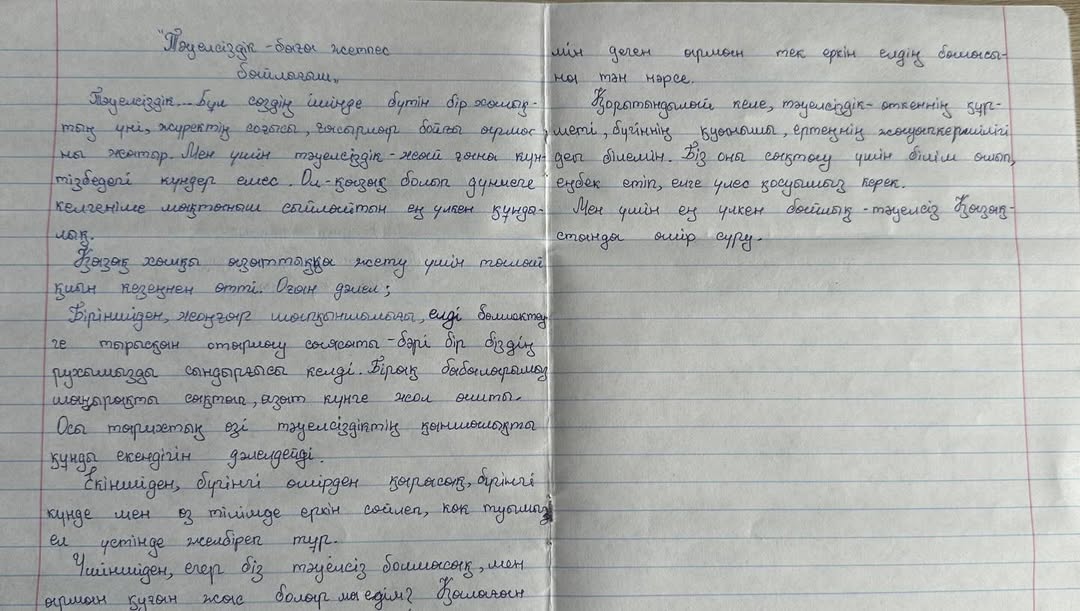 "Тәуелсіздік - баға жетпес
байлағым„
Тәуелсіздік... Бұл сөздің ішінде бүтін бір халық-
тың үні, жүректің соғысы, ғасырлар бойғы арма
ны жатыр. Мен үшін тәуелсіздік - жай ғана күн-
тізбедегі күндер емес. Ол - қазақ болып дүниеге
келгеніме мақтаныш сыйлайтын ең үлкен құнды-
лық.
Қазақ халқы азаттыққа жету үшін талай
қиын кезеңнен өтті. Оған дәлел;
Біріншіден, жоңғар шапқыншылығы, елді бөлшектеу
ге тырысқан отарлау саясаты - бәрі бір біздің
рухымызды сындырғысы келді. Бірақ бабаларымыз
шаңырақты сақтап, азат күнге жол ашты.
Осы тарихтың өзі тәуелсіздіктің қаншалықты
құнды екендігін дәлелдейді.
Екіншіден, бүгінгі өмірден қарасақ, бүгінгі
күнде мен өз тілімде еркін сөйлеп, көк туымыз
ел үстінде желбіреп тұр.
Үшіншіден, егер біз тәуелсіз болмасақ, мен
арман қуған жас болар ма едім? Қалаған
мін деген арман тек еркін елдің баласы-
на тән нәрсе.
Қорытындылай келе, тәуелсіздік - өткеннің құр-
меті, бүгіннің қуанышы, ертеңнің жауапкершілігі
деп білемін. Біз оны сақтау үшін білім алып,
еңбек етіп, елге үлес қосуымыз керек.
Мен үшін ең үлкен байлық - тәуелсіз Қазақ-
станда өмір сүру.